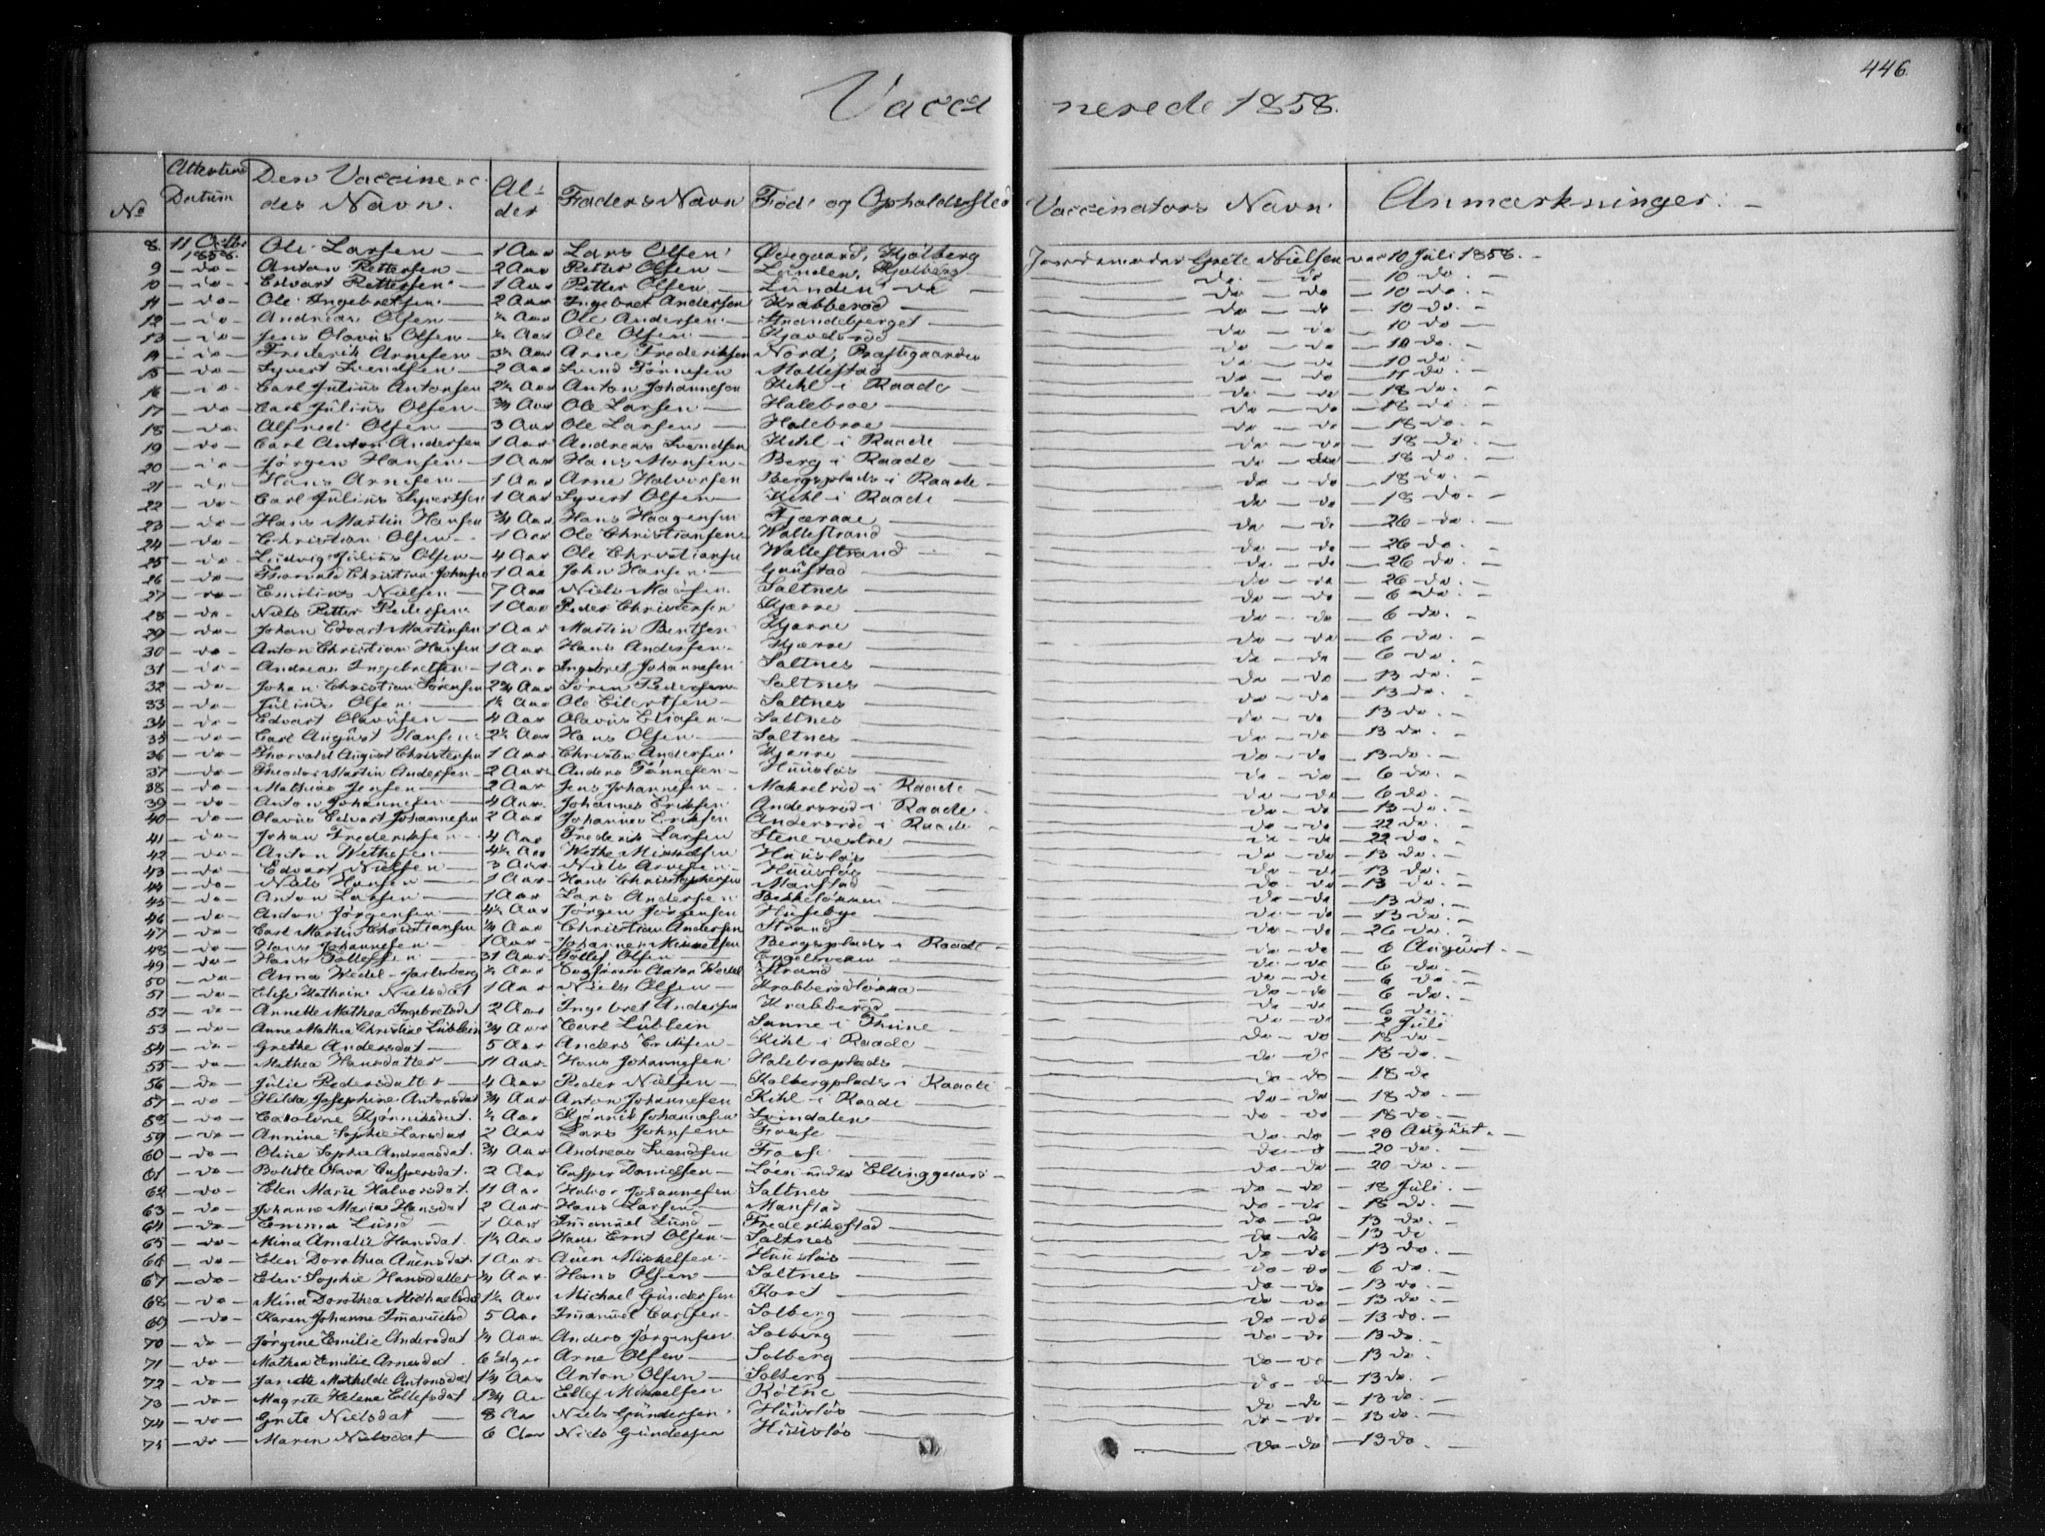 446
Vacci nerede 1858.
No | Attestens Datum | Den Vaccinere des Navn. | Al- der | Faders Navn | Føde og Opholdssted | Vaccinators Navn. | Anmærkninger. —
8 11 Octbr 1858. Ole Larsen — 1 Aar Lars Olsen Øregaard, Kjølberg Jordemoder Grete Nielsen var 10 Juli 1858. —
9 — do — Anton Pettersen — 2 Aar Petter Olsen — Lunden, Kjølberg do — do — 10 do. —
10 — do — Edvart Pettersen 1 Aar Petter Olsen — Lunden do do — do — 10 do. —
11 — do — Ole Ingebretsen 2 Aar Ingebret Andersen Krabberød — do — do — 10 do. —
12 — do — Andreas Olsen — ¾ Aar Ole Andersen — Strandebjerget — do — do — 10 do —
13 — do — Jens Olavus Olsen — Aar Ole Olsen do — do — 10 do. —
14 — do — Frederik Arnesen — 3½ Aar Arne Frederiksen Nord: Præstegaarden do — do — 10 do —
15 — do — Syvert Svendsen — 2 Aar Svend Tønnesen Mallestad — do — do — 17 do. —
16 — do — Carl Julius Antonsen 2½ Aar Anton Johannesen Kihl i Raade — do — do — 18 do. —
17 — do — Carl Julius Olsen — ¾ Aar Ole Larsen — Halebroe — do — do — 18 do. —
18 — do Alfred Olsen — 3 Aar Ole Larsen — Halebroe — do — do — 18 do. —
19 — do — Carl Anton Andersen 1 Aar Andreas Svendsen Kihl i Raade — do — do — 18 do. —
20 — do — Jørgen Hansen — 1 Aar Hans Monsen — Berg i Raade — do — do — 18 do. —
21 — do — Hans Arnesen — 1 Aar Arne Halvorsen Bergsplads i Raade — do — do — 18 do. —
22 — do — Carl Julius Syvertsen 1 Aar Syvert Olsen — Kihl i Raade — do — do — 18 do. —
23 — do — Hans Martin Hansen ¾ Aar Hans Haagensen Fjæraae — do — do — 26 do. —
24 — do — Christian Olsen — 1 Aar Ole Christiansen Wallestrand — do — do — 26 do. —
25 — do — Ludvig Julius Olsen — 4 Aar Ole Christiansen Wallestrand — do — do — 26 do. —
26 — do — Thorvald Christian Johnsen 1 Aar John Hansen — Gaustad — do — do — 26 do. —
27 — do — Emilius Nielsen — 7 Aar Niels Saltnes — do — do — 6 do. —
28 — do — Niels Petter Pedersen 1 Aar Peder Christensen Kjærre — do — do — 6 do. —
29 — do — Johan Edvart Martinsen 1 Aar Martin Bentsen Kjærre — do — do — 6 do. —
30 — do — Anton Christian Hansen 1 Aar Hans Andersen Kjærre — do — do — 6 do. —
31 — do — Andreas Ingebretsen 1 Aar Ingebret Johannesen Saltnes — do — do — 13 do. —
32 — do — Johan Christian Sørensen 2¾ Aar Søren Pedersen Saltnes — do — do — 13 do. —
33 — do — Julius Olsen — 1½ Aar Ole Eilertsen Saltnes — do — do — 13 do. —
34 — do — Edvart Olavusen 4 Aar Olavus Eliasen — Saltnes — do — do — 13 do. —
35 — do — Carl August Hansen 2½ Aar Hans Olsen — Saltnes — do — do — 13 do. —
36 — do — Thorvald August Christensen 1 Aar Christen Andersen Kjærre — do — do — 6 do. —
37 — do — Theodor Martin Andersen 2 Aar Anders Tønnesen — Huusløs — do — do — 6 do. —
38 — do — Mathias Jensen — 2 Aar Jens Johannesen — Makrelrød i Raade — do — do — 13 do. —
39 — do — Anton Johannesen — 4 Aar Johannes Eriksen Andersrød i Raade do — do — 22 do. —
40 — do — Olavus Edvart Johannesen 2 Aar Johannes Eriksen Andersrød i Raade do — do — 22 do. —
41 — do — Johan Frederiksen — 4 Aar Frederik Larsen Stene vestre — do — do — 13 do. —
42 — do — Anton Wethesen — 4½ Aar Wethe Huusløs — do — do — 13 do. —
43 — do — Edvart Nielsen — 3 Aar Niels Arnesen Huusløs — do — do — 13 do. —
44 — do — Niels Hansen — 1 Aar Hans Christophersen Manstad — do — do — 13 do. —
45 — do — Anton Larsen — 1 Aar Lars Andersen do — do — 13 do. —
46 — do — Anton Jørgensen — 4½ Aar Jørgen Jørgensen Huseby — do — do — 26 do. —
47 — do — Carl Martin Christiansen ¼ Aar Christian Andersen Strand — do — do — 6 August —
48 — do — Hans Johannesen — 1 Aar Johannes Mikkelsen Bergsplads i Raade — do — do — 6 do. —
49 — do — Hans Tollefsen — 31 Aar Tollef Olsen — Engelsveen — do — do — 6 do. —
50 — do — Anna Wedel-Jarlsberg ¾ Aar Anton Wedel Strand — do — do — 6 do. —
51 — do — Elise Kathrin Nielsdat 1 Aar Niels Olsen — Krabberødløkka — do — do — 6 do. —
52 — do — Annette Mathea Ingebretsdat 2 Aar Ingebret Andersen Krabberød — do — do — 2 Juli
53 — do — Anne Mathea Christine Lüblein ¾ Aar Carl Lüblein Sanne i Thune — do — do — 18 do —
54 — do — Grethe Andersdat — 5 Aar Anders Eriksen — Kihl i Raade — do — do — 18 do. —
55 — do — Mathea Hansdatter — 11 Aar Hans Johannesen Halebroplads — do — do — 18 do
56 — do — Julie Pedersdatter — 4 Aar Peder Nielsen — Kolbergplads i Raade — do — do — 18 do. —
57 — do — Hilda Josephine Antonsdat ¾ Aar Anton Johannesen Kihl i Raade do — do — 18 do. —
58 — do — Caroline Kjønniksdat ½ Aar Kjønnik Johannesen Svindalen — do — do — 20 August. —
59 — do — Annine Sophie Larsdat 2 Aar Lars Johnsen Frosse — do — do — 20 do. —
60 — do — Oline Sophie Andreasdat ¾ Aar Andreas Svendsen Frosse — do — do — 20 do. —
61 — do — Bolette Olava Caspersdat 2 Aar Casper Danielsen — Løen under Ellinggaard — do — do — 18 Juli. —
62 — do — Elen Marie Halvorsdat 11 Aar Halvor Johannesen Saltnes — do — do — 18 do. —
63 — do — Johanne Maria Hansdat 2 Aar Hans Larsen — Manstad — do — do — 13 do. —
64 — do — Emma Lund — 1 Aar Imanuel Lund — Frederikstad — do — do — 13 do
65 — do — Mina Amalie Hansdat 1½ Aar Hans Ernt Olsen — Saltnes — do — do — 13 do. —
66 — do — Elen Dorothea Auensdat 1 Aar Auen Mikkelsen Huusløs — do — do — 6 do. —
67 — do — Elen Sophie Hansdatter ¾ Aar Hans Olsen — Saltnes — do — do — 13 do. —
68 — do — Mina Dorothea Michaelsdat 1½ Aar Michael Gundersen Koret — do — do — 13 do. —
69 — do — Karen Johanne Imanuelsd 5 Aar Imanuel Carlsen Solberg — do — do — 13 do. —
70 — do — Jørgine Emilie Andersdat ¾ Aar Anders Jørgensen Solberg — do — do — 13 do. —
71 — do — Mathea Emilie Arnesdat 6 Arne Olsen — Solberg — do — do — 13 do.
72 — do — Janette Mathilde Antonsdat 1¾ Aar Anton Olsen — Solberg — do — do — 13 do. —
73 — do — Magrete Helene Ellefsdat 1¾ Aar Ellef Mikkelsen Røtne — do — do — 13 do. —
74 — do — Grete Nielsdat — 8 Aar Niels Gundersen Huusløs — do — do — 13 do. —
75 — do — Maren Nielsdat — 6 Aar Niels Gundersen Huusløs — do — do — 13 do. —